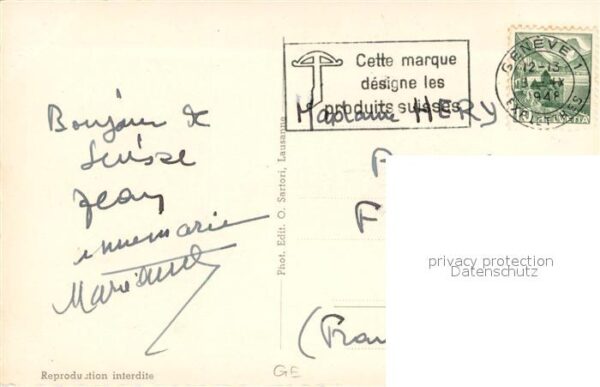 Bonjour de
Suisse
Jean
Annemarie
Reproduction interdite
Phot. Edit. O. Sartori, Lausanne
Cette marque
désigne les
produits suisses
GENÈVE 1
12-13
1948
HELVETIA
Madame HERY
F
(Fran
GE
privacy protection
Datenschutz